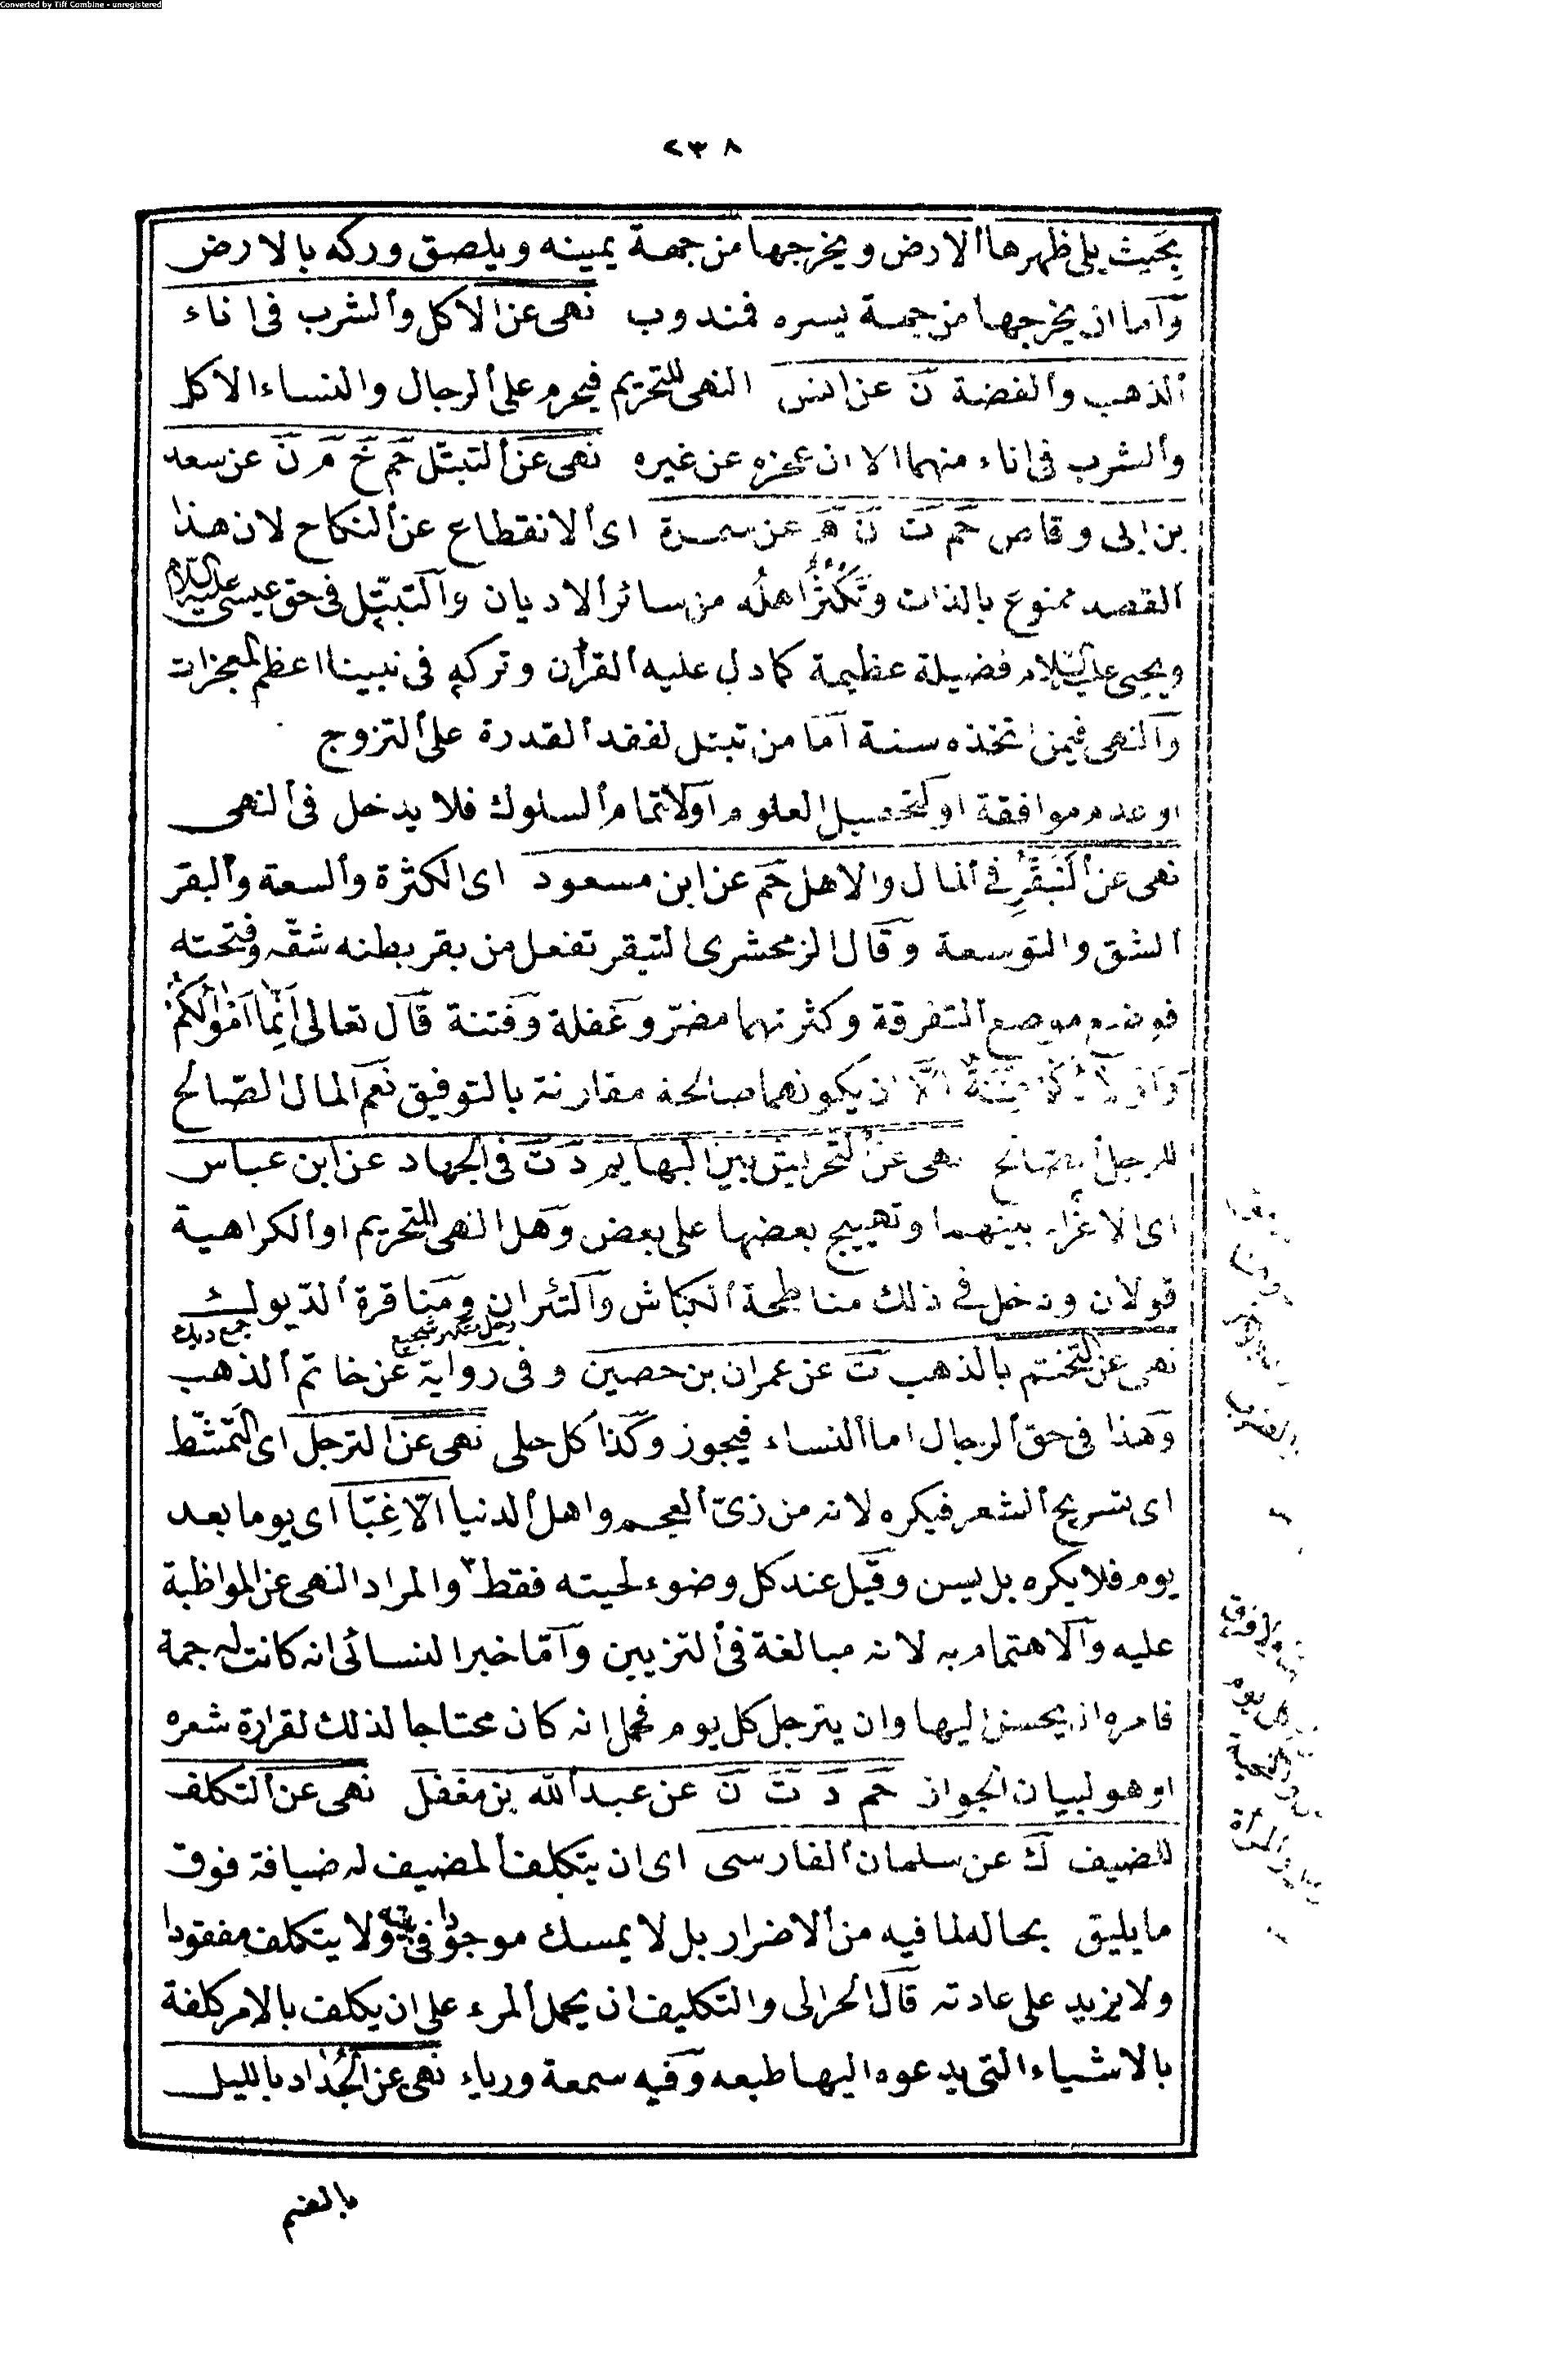 Converted by Tiff Combine - unregistered
٢٣٨
بحيث يلى ظهرها الارض ويخرجها من جهة يمينه ويلصق وركه بالارض
واما ان يخرجها من جهة يسره فمندوب نهى عن الاكل والشرب فى اناء
الذهب والفضة ن عن انس النهى للتحريم فيحرم على الرجال والنساء الاكل
والشرب فى اناء منهما الا ان عجزه عن غيره نهى عن التبتل حم خ م ن عن سعد
بن ابى وقاص حم ت ن ه عن سمرة اى الانقطاع عن النكاح لان هذا
القصد ممنوع بالذات وتكثر اهله من سائر الاديان والتبتّل فى حق عيسى عليه السلام
ويحيى عليه السلام فضيلة عظيمة كما دل عليه القرأن وتركه فى نبينا اعظم المعجزات
والنهى فيمن اتخذه سنة اما من تبتل لفقد القدرة على التزوج
او عدم موافقة او لتحصيل العلوم او لاتمام السلوك فلا يدخل فى النهى
نهى عن التَبَقُّرِ فى المال والاهل حم عن ابن مسعود اى الكثرة والسعة والبقر
الشق والتوسعة وقال الزمحشرى التبقر تفعل من بقر بطنه شقّه وفتحته
فوضع موضع التفرقة وكثرتهما مضرّ وغفلة وفتنة قال تعالى اَنِّما اَمْوَالُكُمْ
وَاَوْلَادُكُمْ فِتْنَةٌ الّا ان يكونهما صالحة مقارنة بالتوفيق نعم المال الصّالح
للرجل الصالح نهى عن التحريش بين البهايم د ت فى الجهاد عن ابن عباس
اى الاغراء بينهما وتهييج بعضها على بعض وهل النهى للتحريم او الكراهية
قولان ودخل فى ذلك مناطحة الكباش والتئران ومناقرة الديوك
جمع ديك
نهى عن التختم بالذهب ت عن عمران بن حصين وفى رواية عن خاتم الذهب
وهذا فى حق الرجال اما النساء فيجوز وكذا كل حلى نهى عن الترجل اى التمشّط
اى تسريح الشعر فيكره لانه من زىّ العجم واهل الدنيا الّا غِبّا اى يوما بعد
يوم فلا يكره بل يسن وقيل عند كل وضوء لحيته فقط والمراد النهى عن المواظبة
عليه والاهتمام به لانه مبالغة فى التزيين وامّا خبر النسائى انه كانت له جمة
فامره ان يحسن اليها وان يترجل كل يوم فحمل انه كان محتاجا لذلك لقرارة شعره
او هو لبيان الجواز حم د ت ن عن عبد الله بن مغفل نهى عن التكلف
للضيف ك عن سلمان الفارسى اى ان يتكلف المضيف له ضيافة فوق
ما يليق بحاله لما فيه من الاضرار بل لا يمسك موجودا فى بيته ولا يتكلف مفقودا
ولا يزيد على عادته قال الحرالى والتكليف ان يحمل المرء على ان يكلف بالامر كلفة
بالاشياء التى يدعوه اليها طبعه وفيه سمعة ورياء نهى عن الجُداد بالليل
بالضم